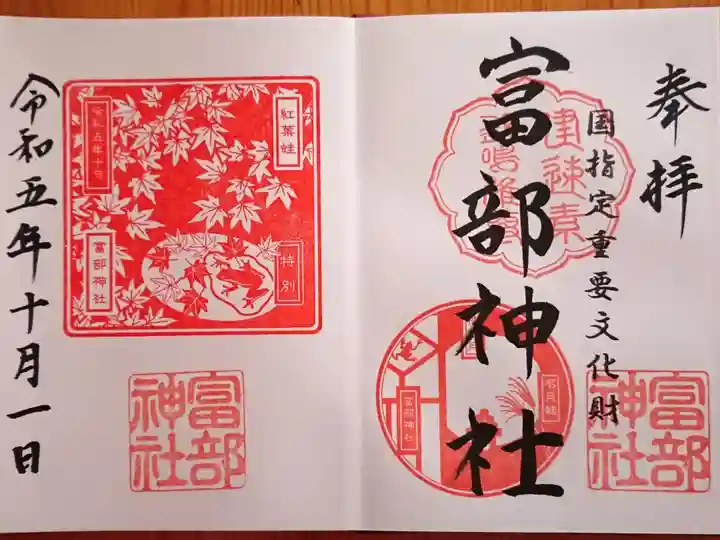 奉拝
国指定重要文化財
富部神社
建速素
富部神社
名月蛙
富部神社
紅葉蛙
令和五年十月
特別
富部神社
富部神社
令和五年十月一日